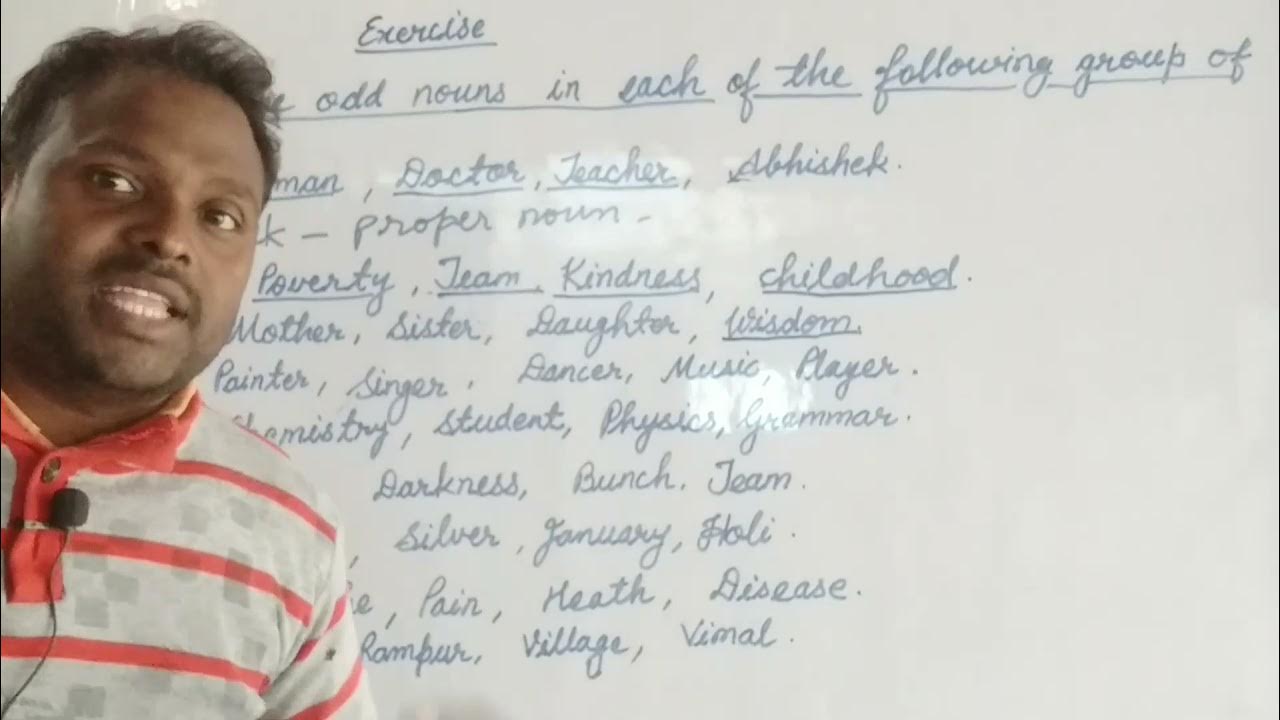 Exercise
odd nouns in each of the following group of
man, Doctor, Teacher, Abhishek.
k - Proper noun -
Poverty, Team, Kindness, childhood.
Mother, Sister, Daughter, Wisdom.
Painter, Singer, Dancer, Music, Player.
Chemistry, Student, Physics, Grammar.
Darkness, Bunch, Team.
, Silver, January, Holi.
e, Pain, Heath, Disease.
Rampur, Village, Vimal.